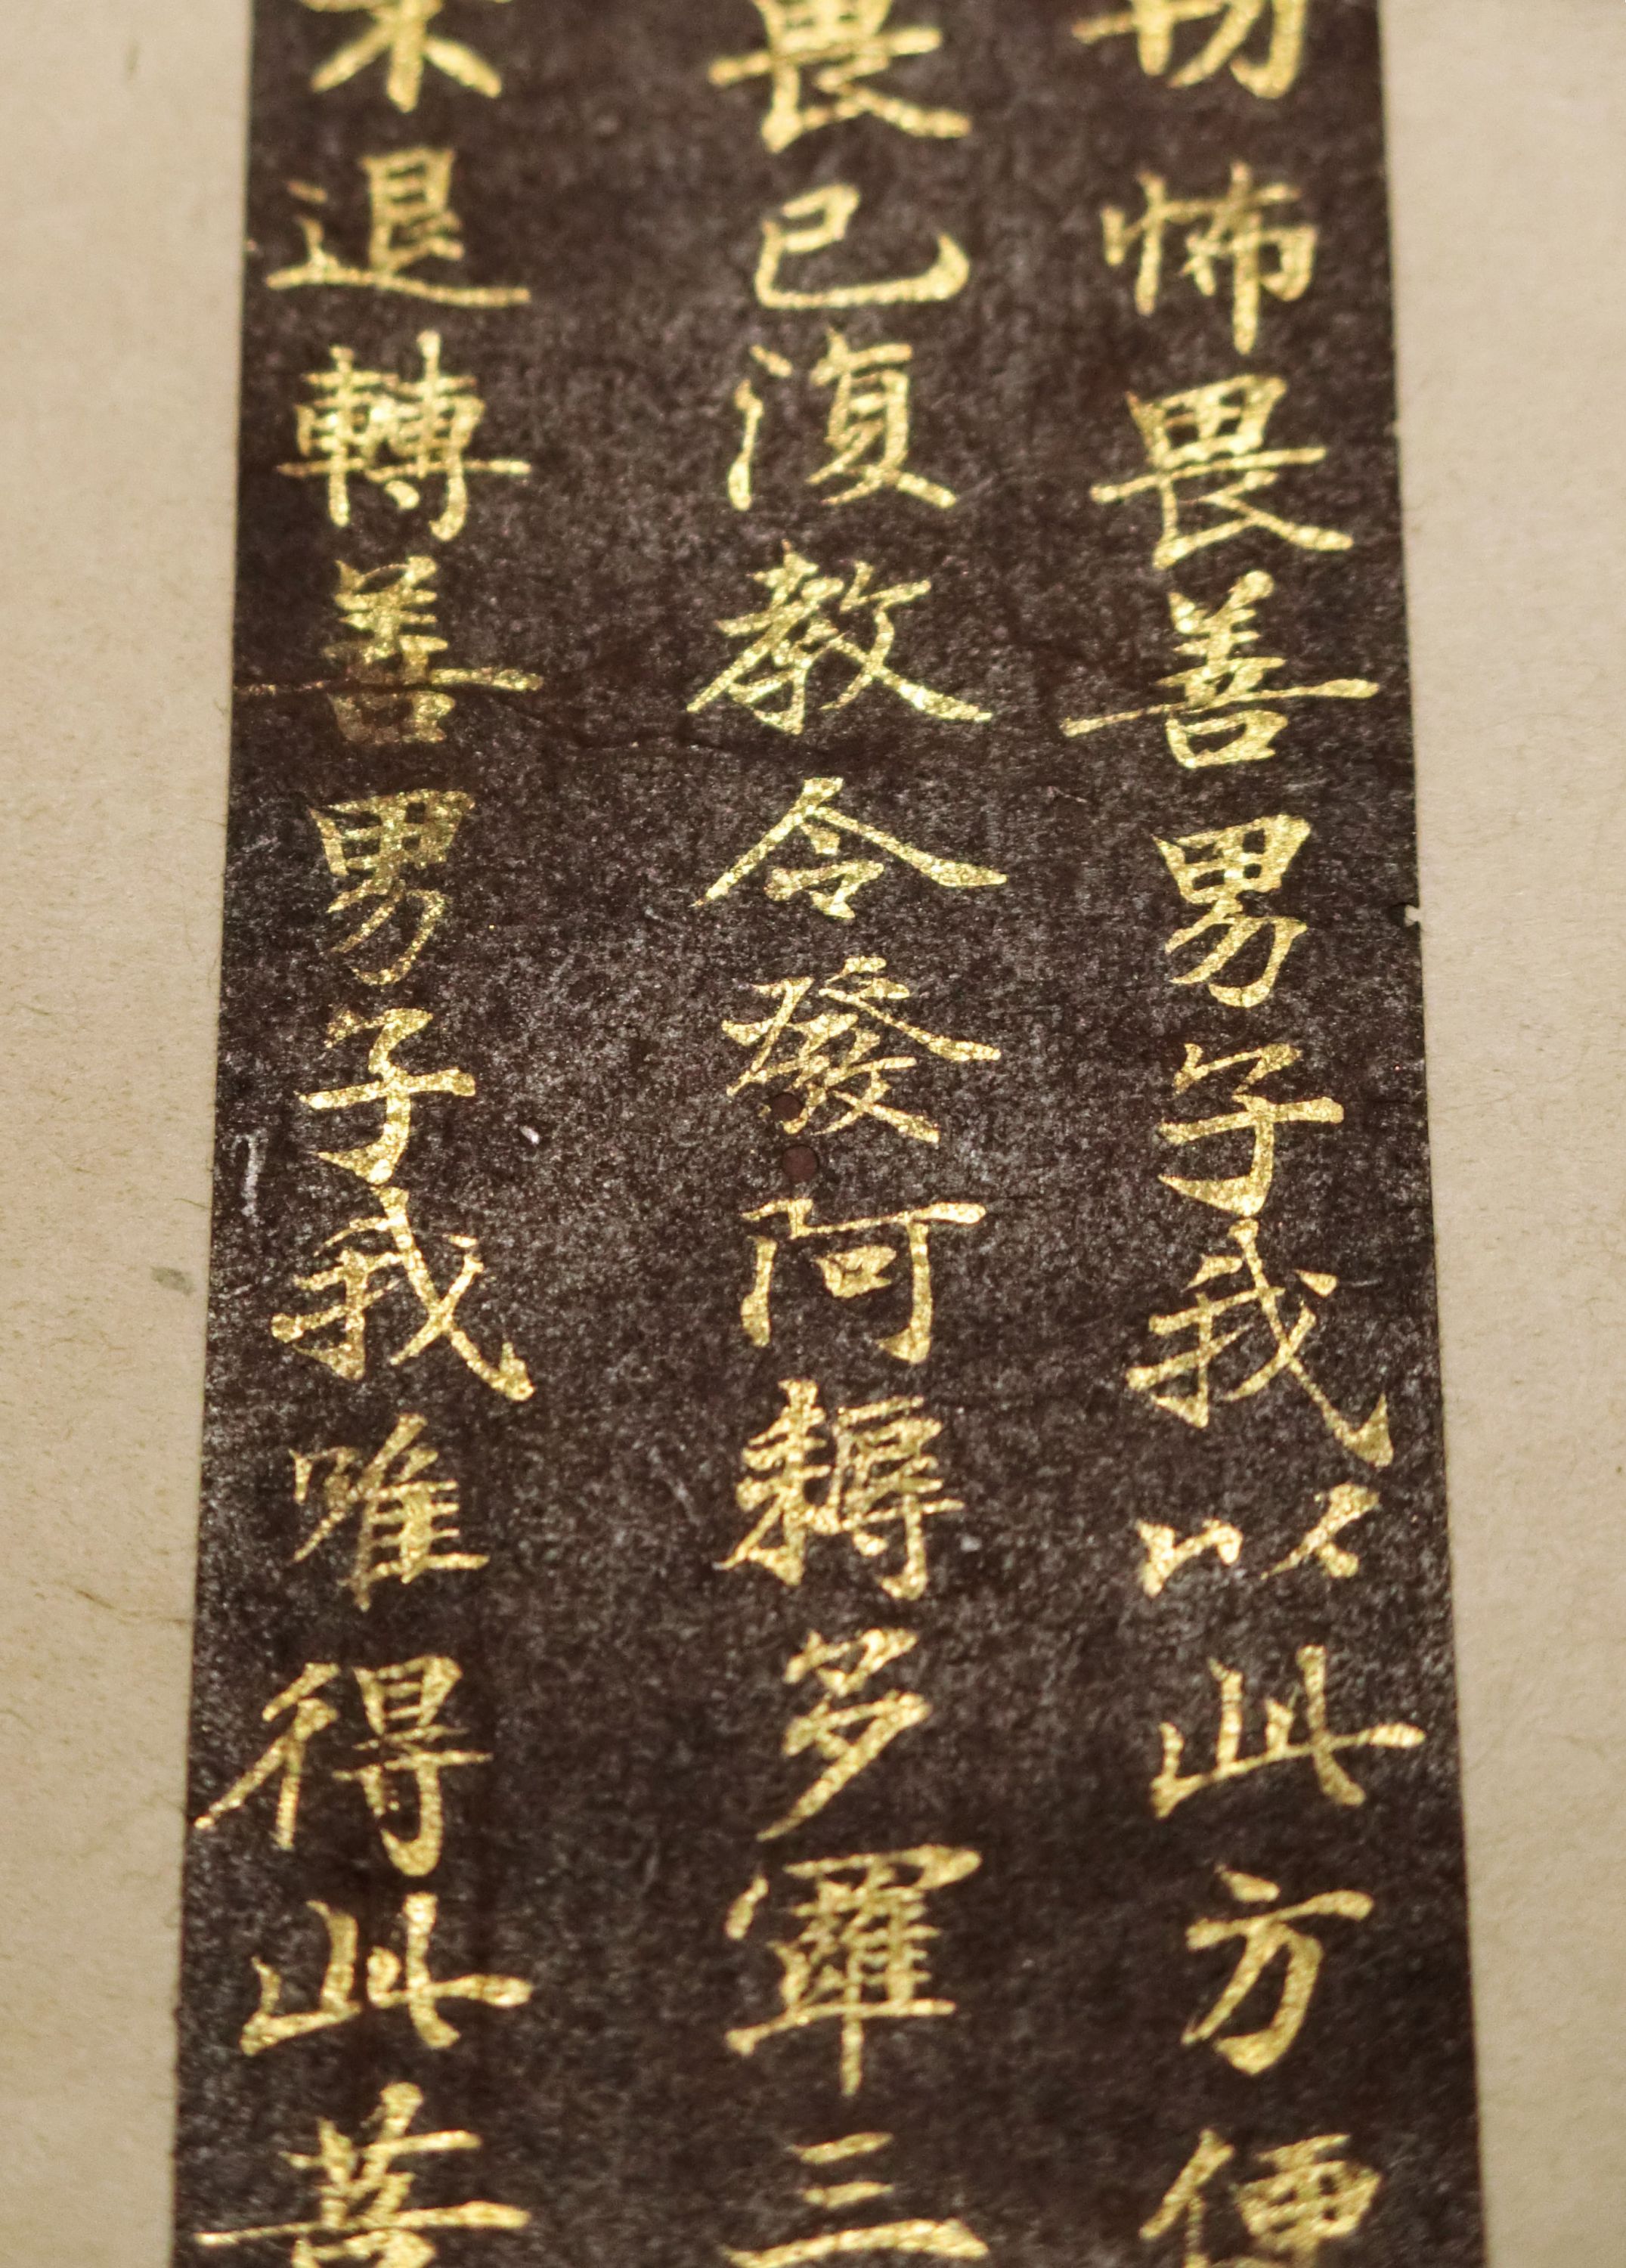 怖畏善男子我以此方便
畏已復教令發阿耨多羅三
不退轉善男子我唯得此菩